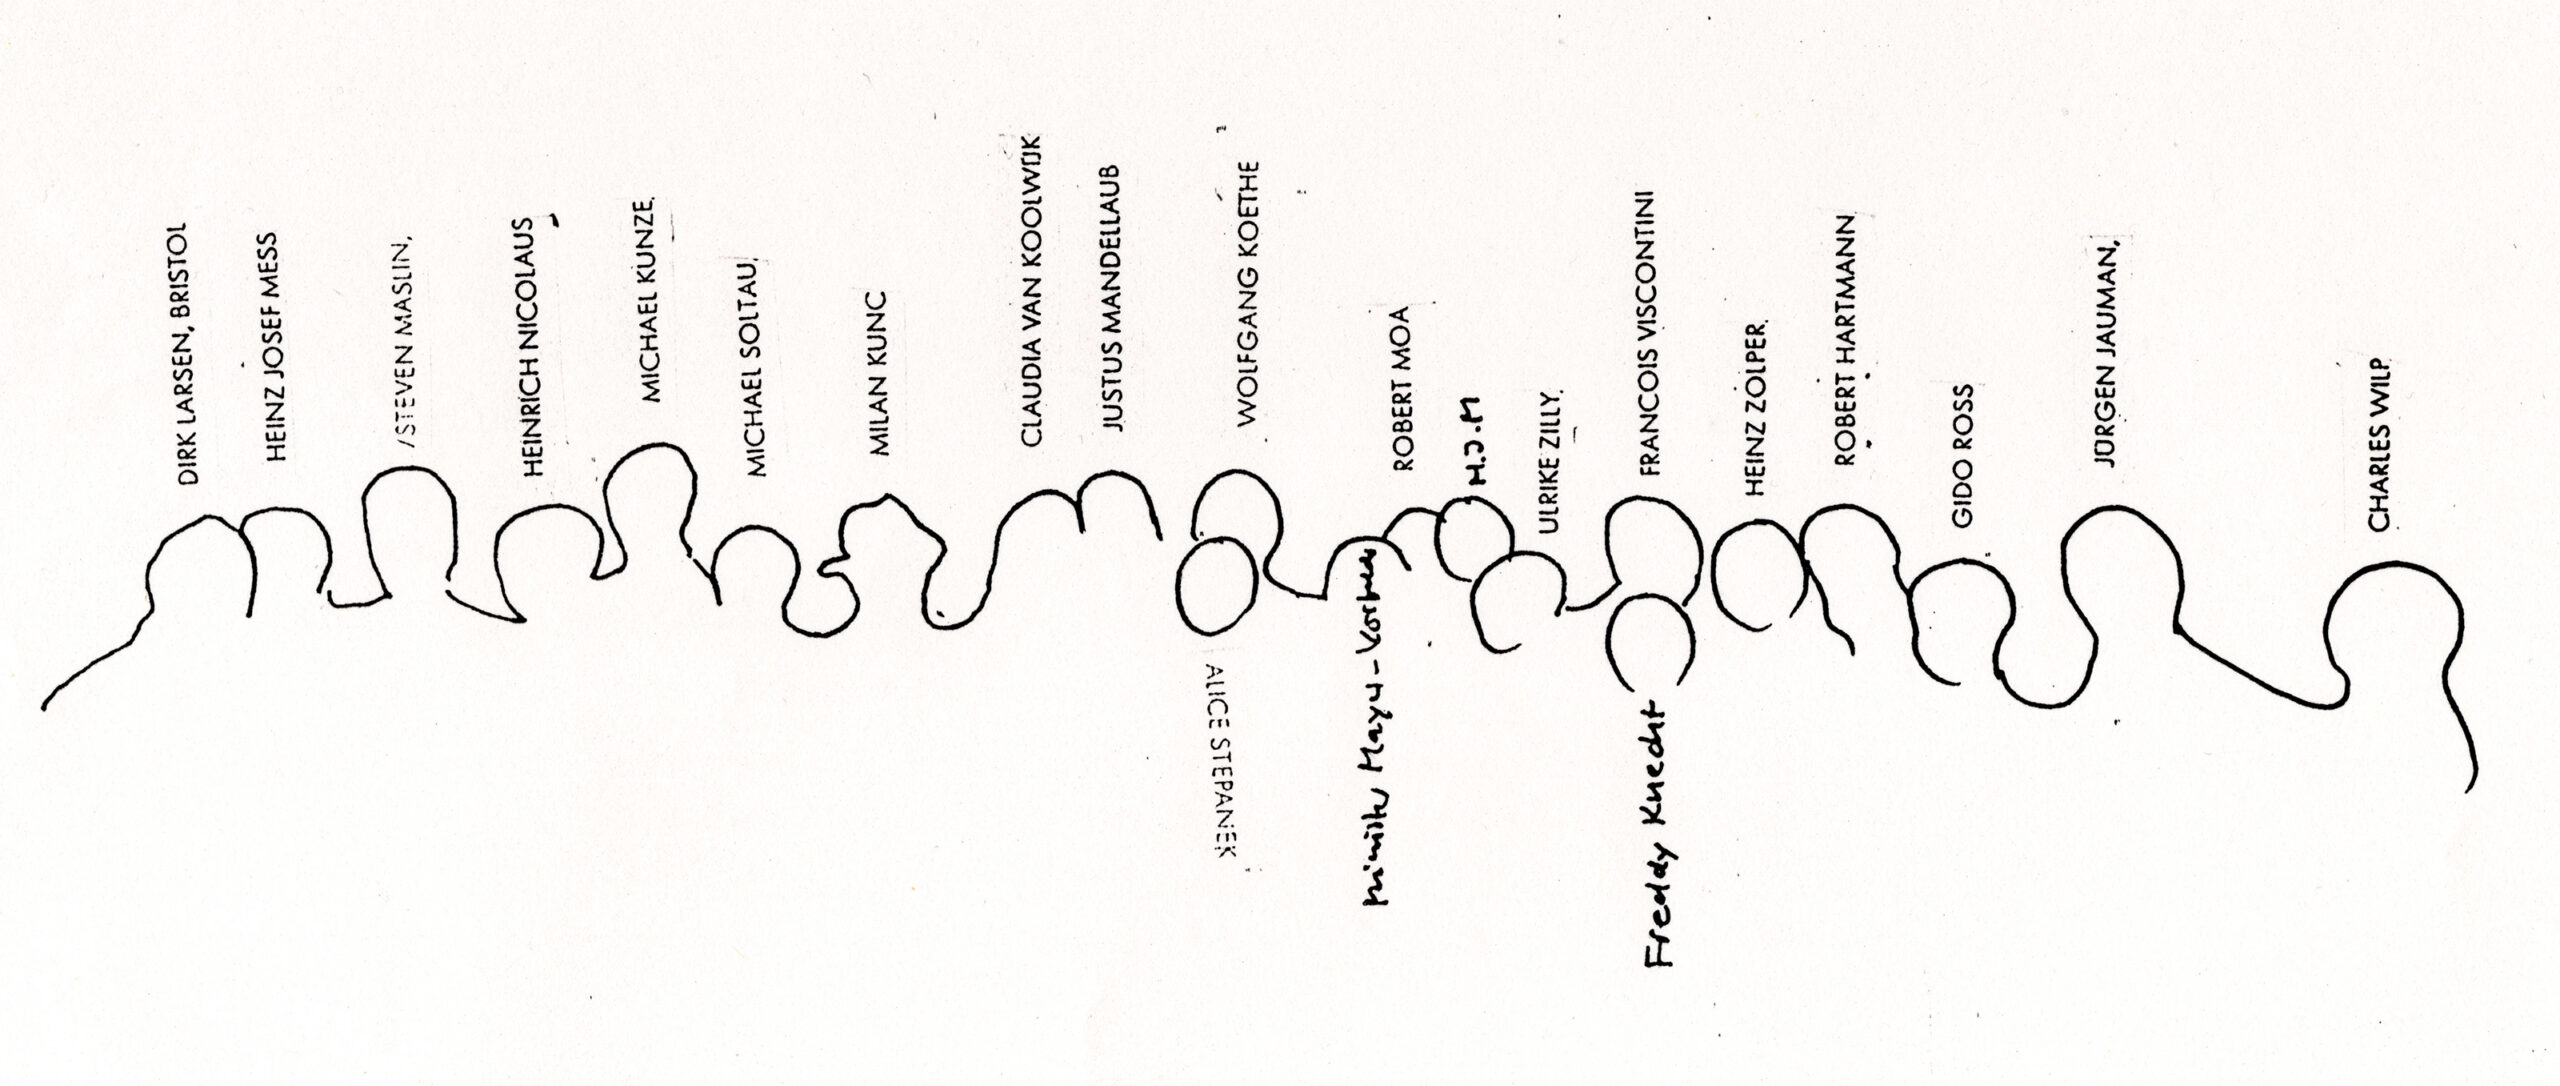 DIRK LARSEN, BRISTOL
HEINZ JOSEF MESS
/STEVEN MASLIN,
HEINRICH NICOLAUS
MICHAEL KUNZE,
MICHAEL SOLTAU,
MILAN KUNC
CLAUDIA VAN KOOLWIJK
JUSTUS MANDELLAUB
WOLFGANG KOETHE
ALICE STEPANEK
ROBERT MOA
H.J.M
ULRIKE ZILLY,
FRANCOIS VISCONTINI
Freddy Knecht
HEINZ ZOLPER,
ROBERT HARTMANN
GIDO ROSS
JÜRGEN JAUMAN,
CHARLES WILP